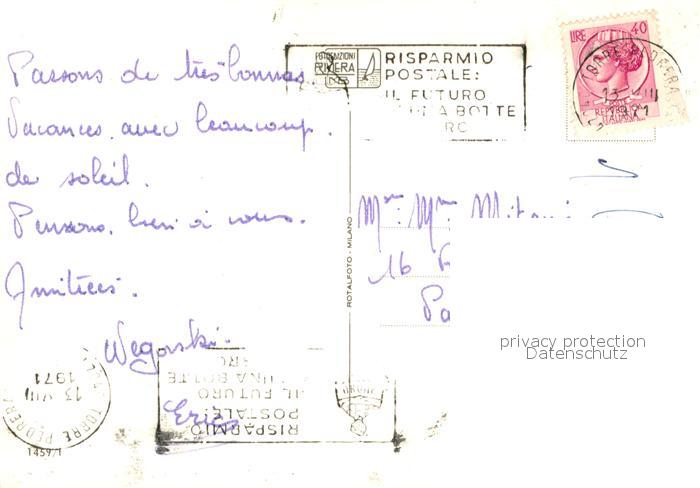 Passons de très bonnes
Vacances avec beaucoup
de soleil.
Pensons bien à vous.
Amitiés.
Wegorski.
Eric
FOTOEDIZIONI
RIVIERA
RISPARMIO
POSTALE:
IL FUTURO
BOTTE
LIRE 40
TORRE PEDRERA
13 VIII
1971
REPUBBLICA
ITALIANA
ROTALFOTO - MILANO
Mme
16
Pa
privacy protection
Datenschutz
TORRE PEDRERA
13 VIII
1971
RISPARMIO
POSTALE:
IL FUTURO
UNA BOTTE
1459/1